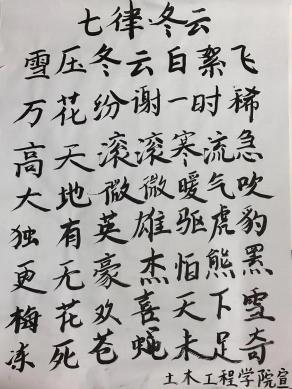 七律冬云
雪压冬云白絮飞
万花纷谢一时稀
高天滚滚寒流急
大地微微暖气吹
独有英雄驱虎豹
更无豪杰怕熊黑
梅花欢喜天下雪
冻死苍蝇未足奇
土木工程学院宣